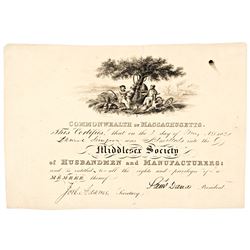 COMMONWEALTH OF MASSACHUSETTS.
This Certifies, that on the day of
was into the
Middlesex Society
OF HUSBANDMEN AND MANUFACTURERS:
and is entitled to all the rights and privileges of a
MEMBER thereof.
Secretary President